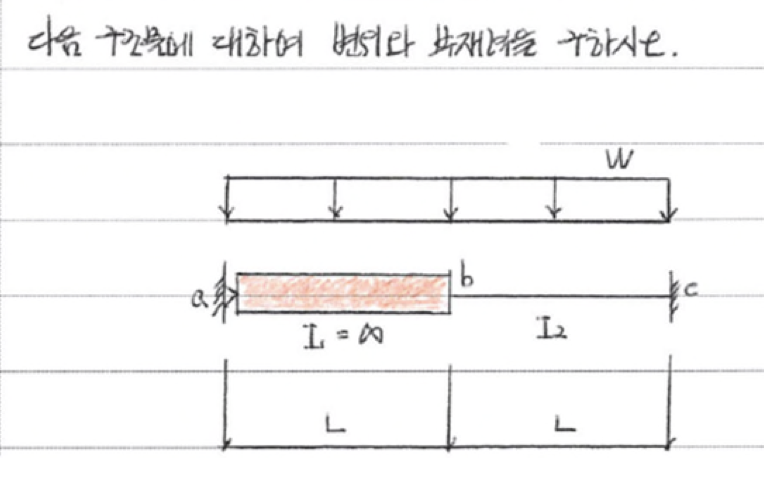 다음 구조물에 대하여 변위와 부재력을 구하시오.
W
a
b
c
I₁ = ∞
I₂
L
L